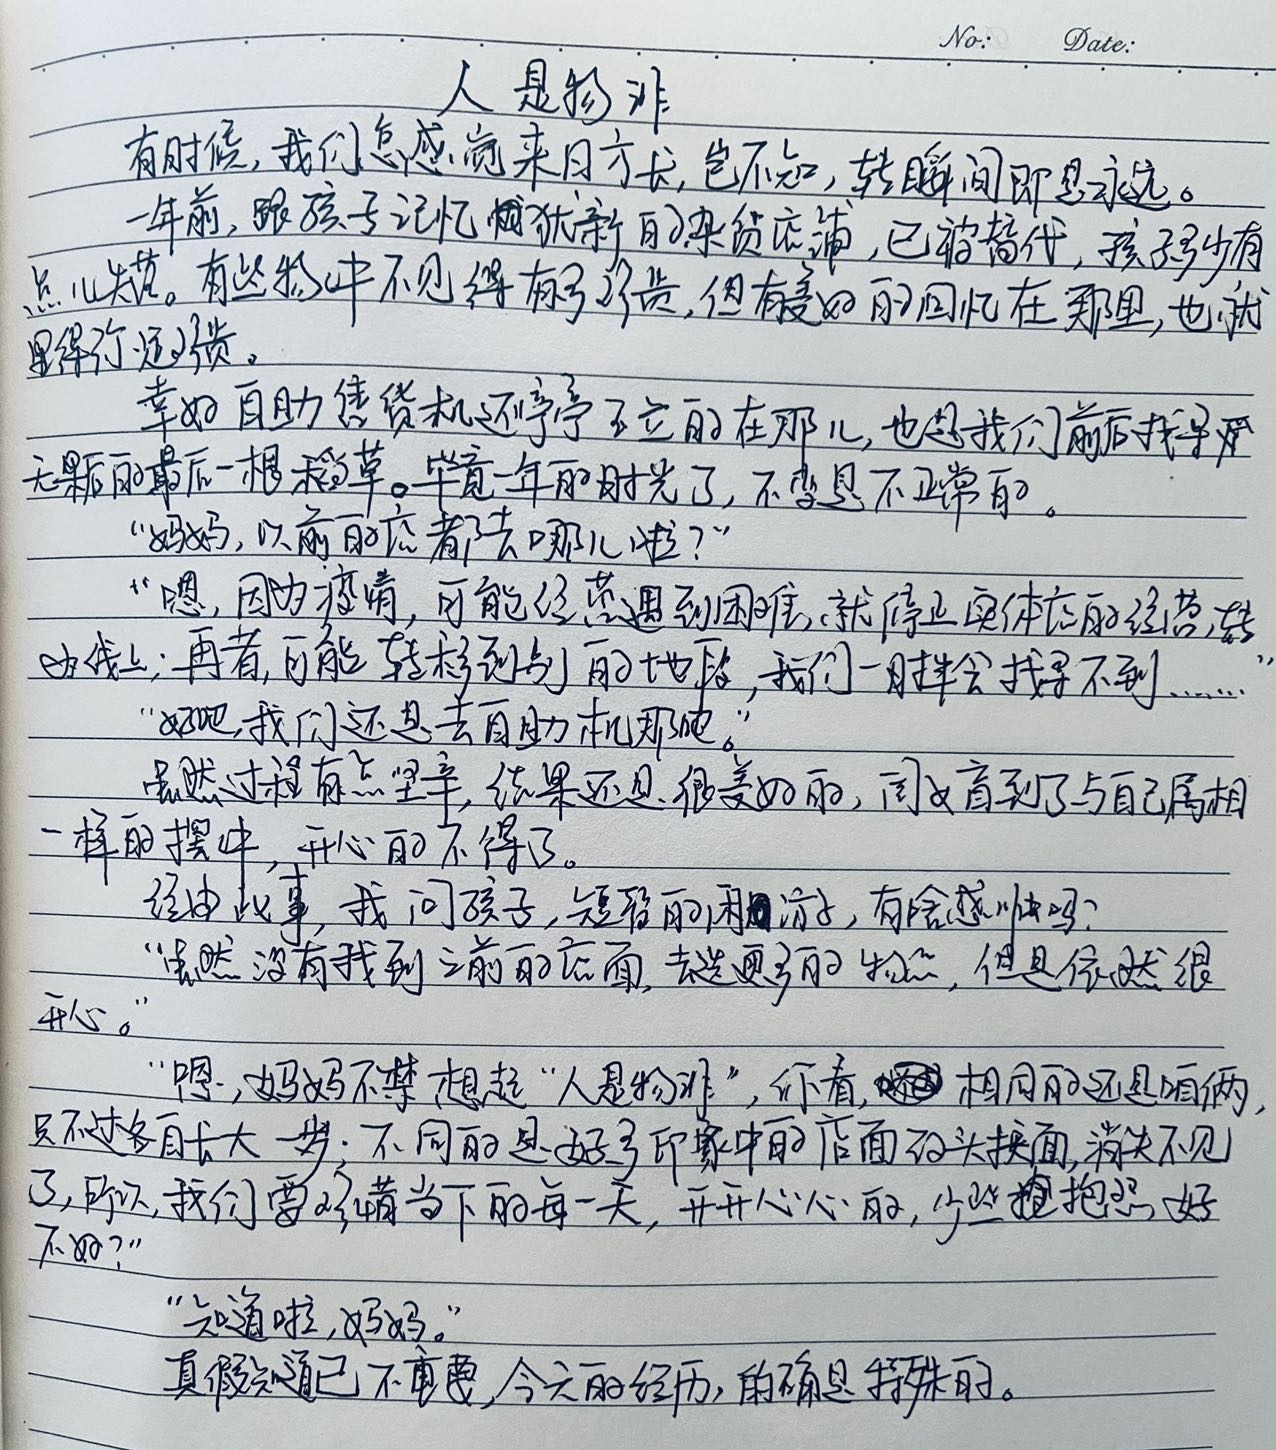 No: Date:
人是物非
有时候，我们总感觉来日方长，岂不知，转瞬间即是永远。
一年前，跟孩子记忆犹新的杂货店铺，已被替代，孩子多少有
点儿失落。有些物件不见得有多珍贵，但有美好的回忆在那里，也就
显得弥足珍贵。
幸好自助售货机还亭亭玉立的在那儿，也是我们前后找寻
无果后的最后一根稻草。毕竟一年的时光了，不变是不正常的。
“妈妈，以前的店都去哪儿啦？”
“嗯，因为疫情，可能经营遇到困难，就停止实体店的经营，转
为线上；再者，可能转移到别的地段，我们一时半会找寻不到……”
“好吧，我们还是去自助机那吧。”
虽然过程有点坚辛，结果还是很美好的，闺女盲到了与自己属相
一样的摆件，开心的不得了。
经由此事，我问孩子，短暂的闲游，有啥感悟吗？
“虽然没有找到之前的店面，去选更多的物品，但是依然很
开心。”
“嗯，妈妈不禁想起“人是物非”，你看，相同的还是咱俩，
只不过各自长大一岁；不同的是好多印象中的店面改头换面，消失不见
了，所以，我们要珍惜当下的每一天，开开心心的，少些抱怨，好
不好？”
“知道啦，妈妈。”
真假知道已不重要，今天的经历，的确是特殊的。